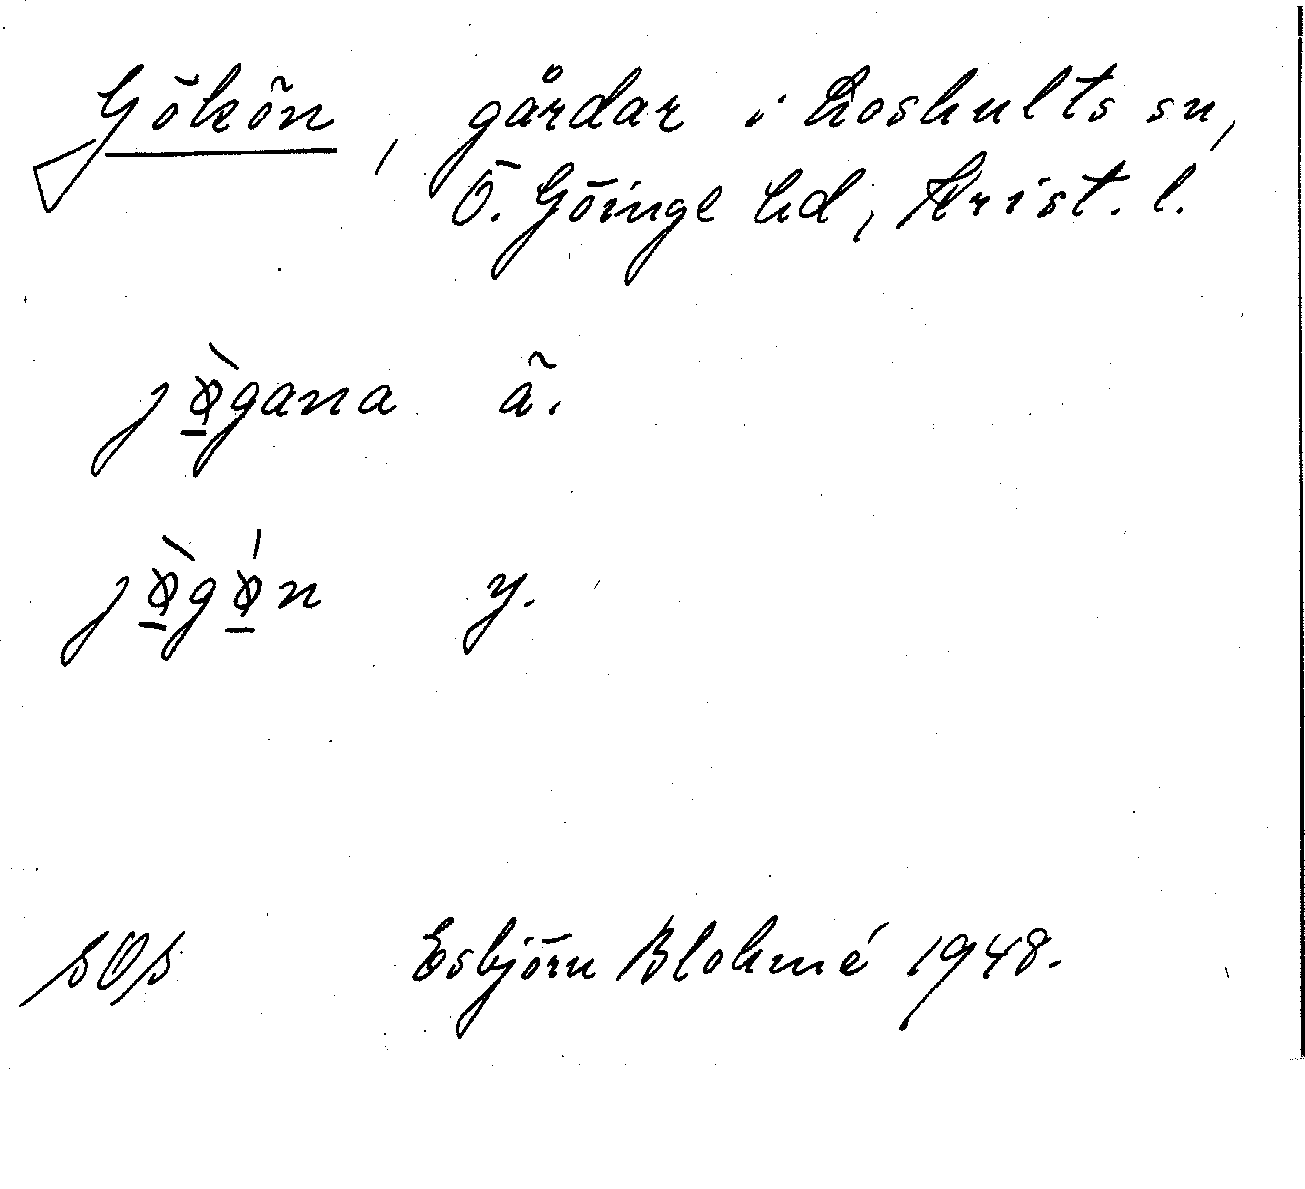 Gökön, gårdar i Loshults sn,
Ö. Göinge hd, Krist. l.
jø̱̀gana ä.
jø̱̀gǿ̱n y.
sOs Esbjörn Blohmé 1948.